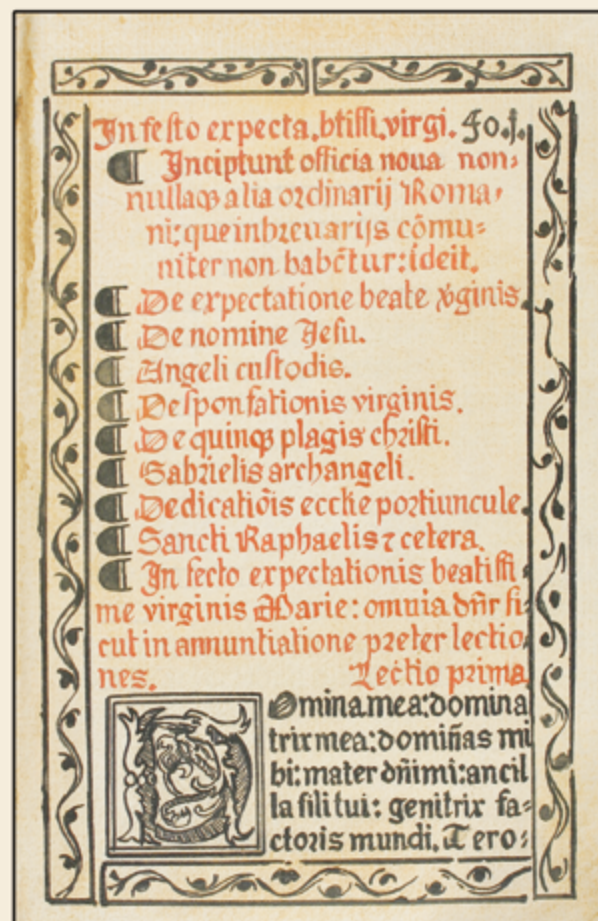 In festo expecta.btissi.virgi. Fo.j.
¶ Incipiunt officia noua non-
nullaqꝫ alia ordinarij Roma-
ni: que in breuarijs cōmu-
niter non habētur: id eit.
¶ De expectatione beate v̄ginis.
¶ De nomine Jesu.
¶ Angeli custodis.
¶ Desponsationis virginis.
¶ De quinqꝫ plagis christi.
¶ Gabrielis archangeli.
¶ Dedicatiōis eccłie portiuncule.
¶ Sancti Raphaelis ⁊ cetera.
¶ In fecto expectationis beatissi-
me virginis Marie: omnia dn̄r si-
cut in annuntiatione preter lectio-
nes. Lectio prima
Omina mea: domina
trix mea: domin̄as mi
hi: mater dn̄i mi: ancil
la filii tui: genitrix fa-
ctoris mundi. Te ro-